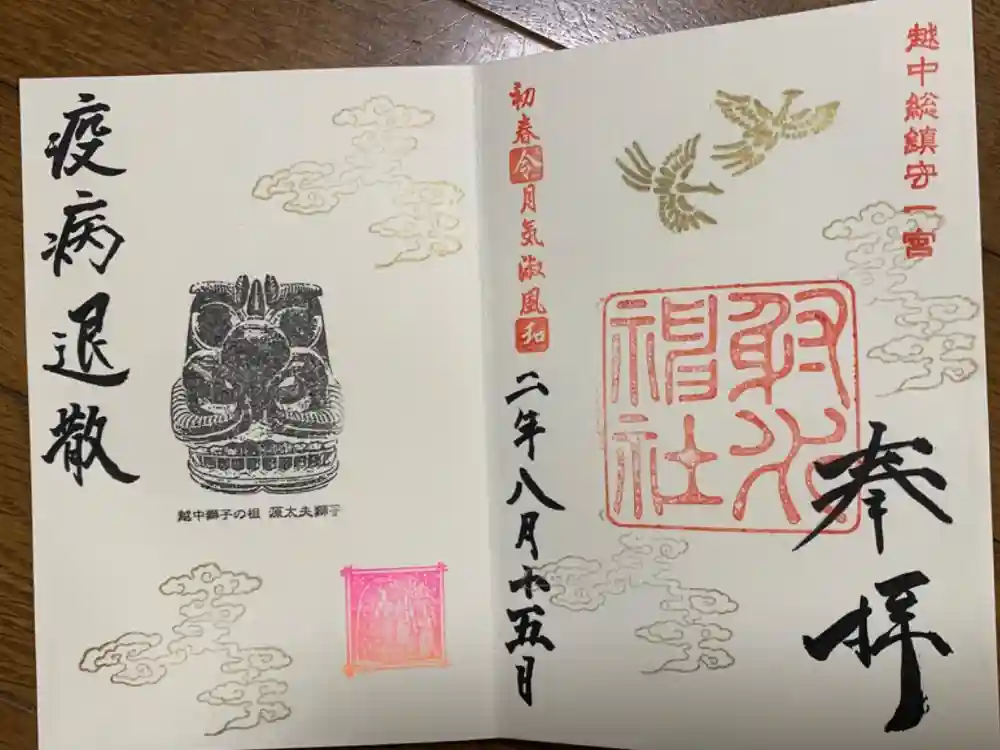 越中総鎮守一宮
奉拝
射水神社
初春令月気淑風和
二年八月十五日
疫病退散
越中獅子の祖 源太夫獅子